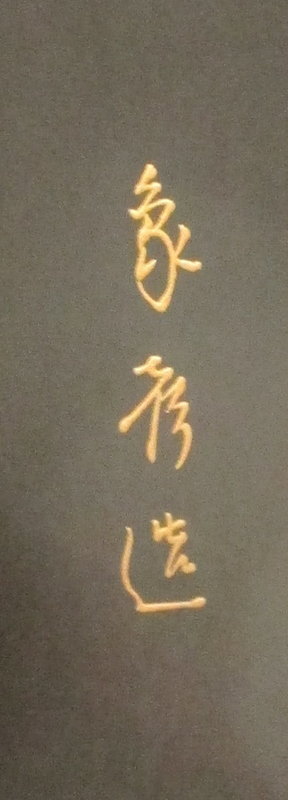 象彦造